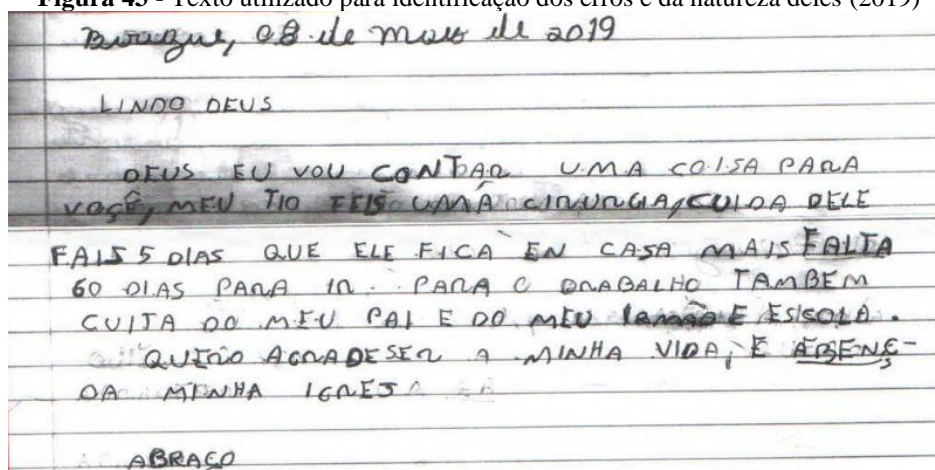 Figura 45 - Texto utilizado para identificação dos erros e da natureza deles (2019)
Brusque, 08 de maio de 2019
LINDO DEUS
DEUS EU VOU CONTDAR UMA COISA PARA
VOÇÊ, MEU TIO FEIS UMA CIRURGIA, CUIDA DELE
FAIS 5 DIAS QUE ELE FICA EN CASA MAIS FALTA
60 DIAS PARA IR. PARA O DRABALHO TAMBEM
CUITA DO MEU PAI E DO MEU E ESISCOLA.
QUERO AGRADESER A MINHA VIDA, E ABENÇ-
OA MINHA IGREJA
ABRAÇO